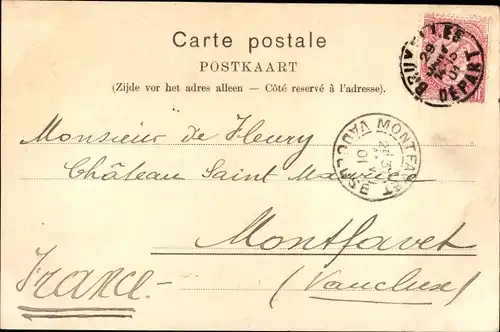 Carte postale
POSTKAART
(Zijde vor het adres alleen — Côté reservé à l'adresse).
BRUXELLES
29
5
01
DEPART
MONTFAVET
VAUCLUSE
01
Monsieur de Fleury
Château Saint Maurice
Montfavet
(Vaucluse)
France.